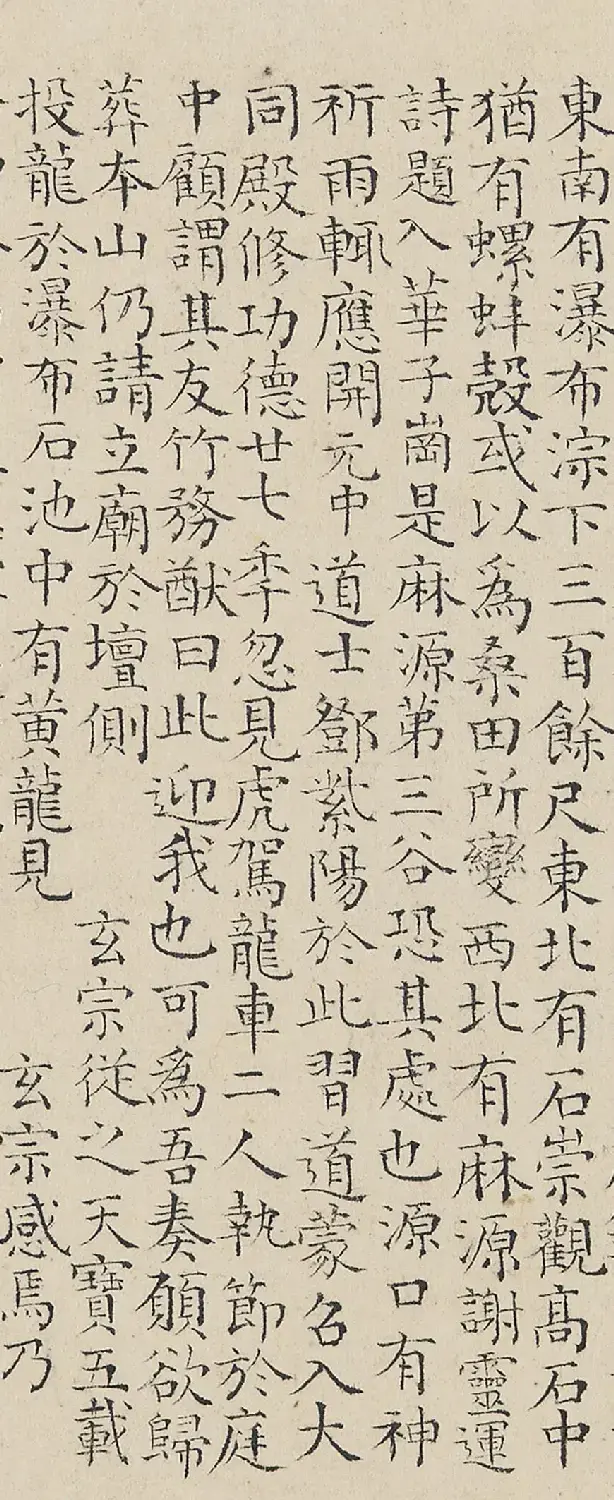 東南有瀑布淙下三百餘尺東北有石崇觀高石中
猶有螺蚌殼或以為桑田所變西北有麻源謝靈運
詩題入華子崗是麻源第三谷恐其處也源口有神
祈雨輒應開元中道士鄧紫陽於此習道蒙召入大
同殿修功德廿七季忽見虎駕龍車二人執節於庭
中顧謂其友竹務猷曰此迎我也可為吾奏願欲歸
葬本山仍請立廟於壇側玄宗從之天寶五載
投龍於瀑布石池中有黃龍見玄宗感焉乃